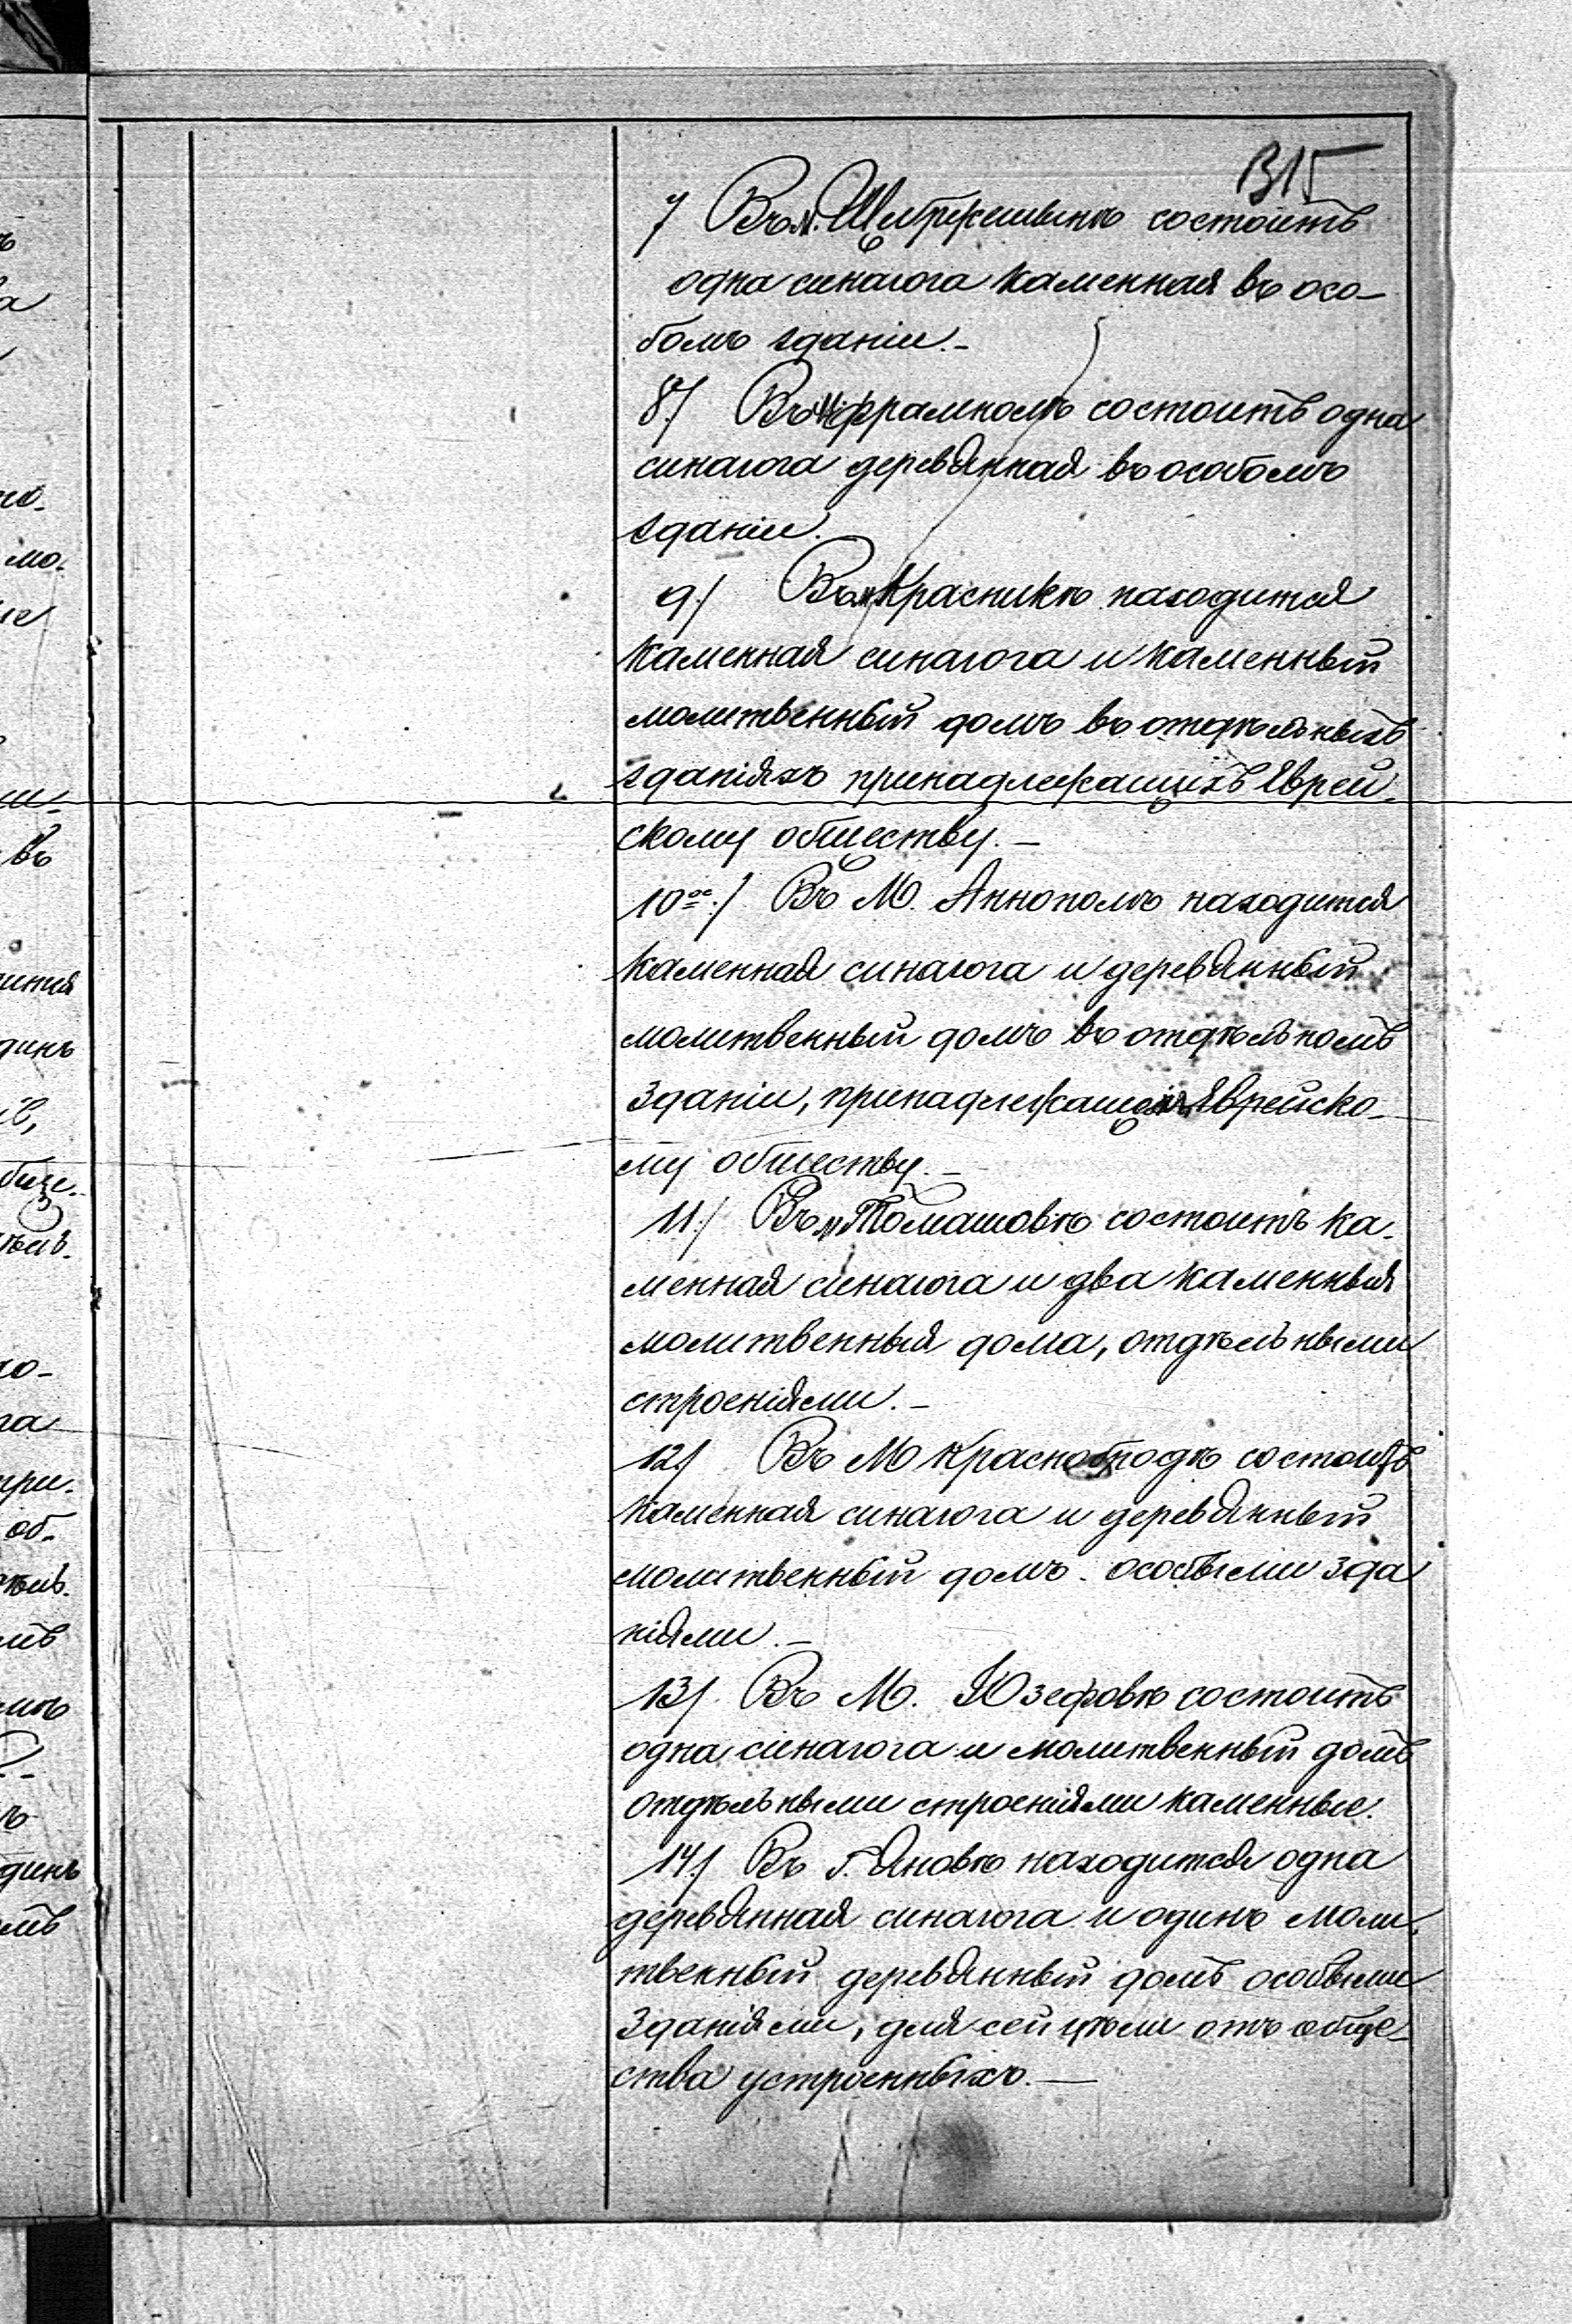 315
7 Въ м. Щебржешинѣ состоитъ
одна синагога каменная въ осо-
бомъ зданіи.-
8./ Въ м. Фрамполѣ состоитъ одна
синагога деревянная въ особомъ
зданіи.
9./ Въ м. Красникѣ находится
каменная синагога и каменный
молитвенный домъ въ отдѣльныхъ
зданіяхъ принадлежащихъ Еврей-
скому обществу.-
10ое./ Въ М. Аннополѣ находится
каменная синагога и деревянный
молитвенный домъ въ отдѣльномъ
зданіи, Еврейско-
му обществу.-
11./ Въ м. Томашовѣ состоитъ ка-
менная синагога и два каменныя
молитвенныя дома, отдѣльными
строеніями.-
12./ Въ М Краснобродѣ состоитъ
каменная синагога и деревянный
молитвенный домъ. особыми зда
ніями.-
13/. Въ М. Юзефовѣ состоитъ
одна синагога и молитвенный домъ
отдѣльными строеніями каменные.
14./ Въ г. Яновѣ находится одна
деревянная синагога и одинъ моли-
твенный деревянный домъ особыми
зданіями, для сей цѣли отъ обще-
ства устроенныхъ.-